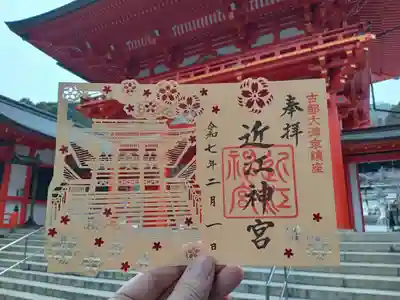 古都大津京鎮座
奉拝
近江神宮
令和七年二月一日